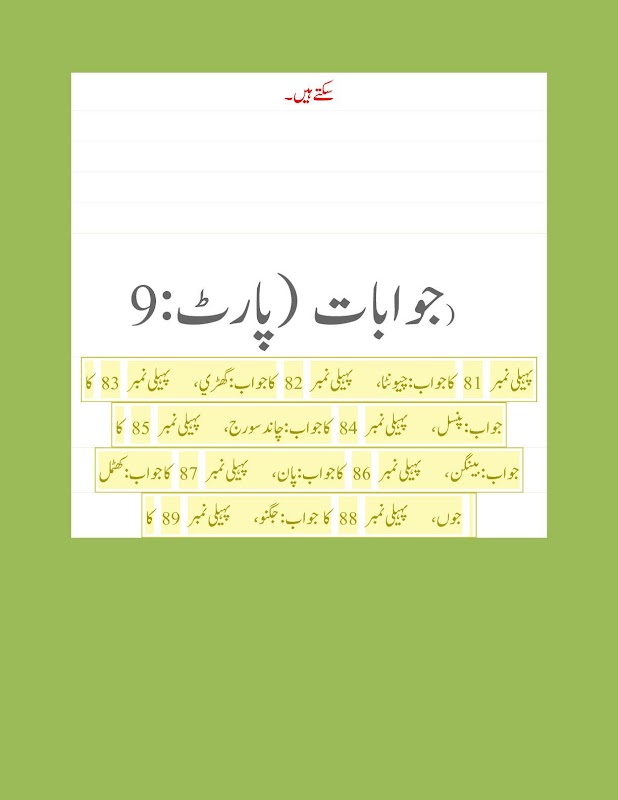 سکتے ہیں۔
جوابات (پارٹ:9)
پہیلی نمبر 81 کا جواب: چیونٹا، پہیلی نمبر 82 کا جواب: گھڑي، پہیلی نمبر 83 کا
جواب: پنسل، پہیلی نمبر 84 کا جواب: چاند سورج، پہیلی نمبر 85 کا
جواب: بینگن، پہیلی نمبر 86 کا جواب: پان، پہیلی نمبر 87 کا جواب: کھٹمل
جوں، پہیلی نمبر 88 کا جواب: جگنو، پہیلی نمبر 89 کا